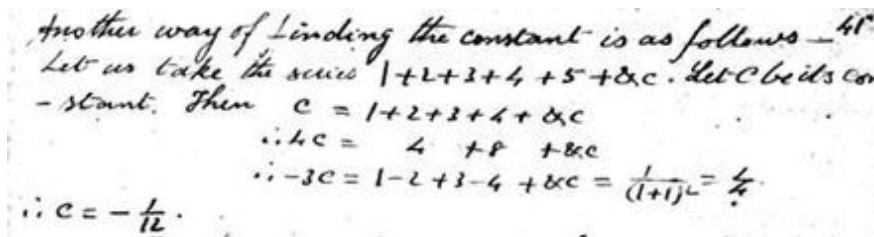 Another way of finding the constant is as follows — 41
Let us take the series 1+2+3+4+5+&c. Let C be its con
-stant. Then c = 1+2+3+4+&c
∴ 4c = 4 +8 +&c
∴ -3c = 1-2+3-4+&c = 1/(1+1)² = 1/4.
∴ c = -1/12.